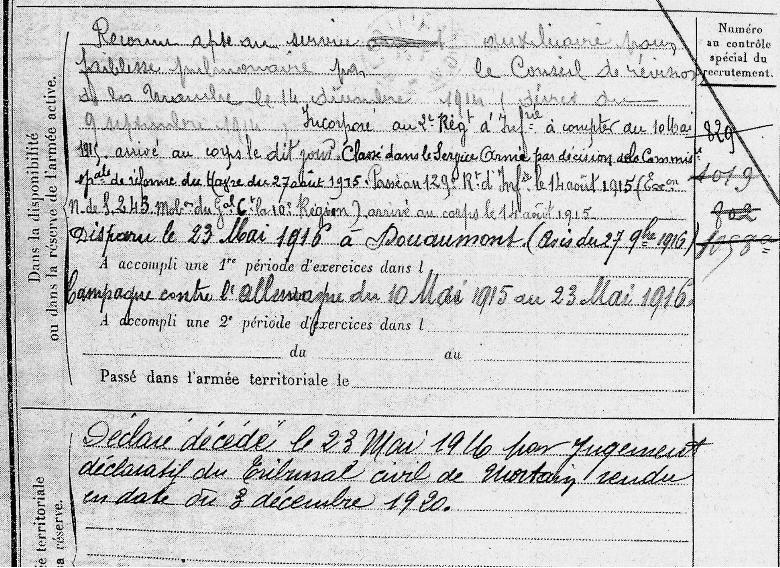 Numéro
au contrôle
spécial du
recrutement.
Dans la disponibilité
ou dans la réserve de l'armée active.
Reconnu apte au service auxiliaire pour
faiblesse pulmonaire par le Conseil de révision
de la Manche le 14 décembre 1914 (décret du
9 septembre 1914) Incorporé au 2e Régt d'Infrie à compter du 10 Mai
1915, arrivé au corps le dit jour. Classé dans le Service Armé par décision de la Commis
spale de réforme du Havre du 27 août 1915. Passé au 129e Rt d'Infie le 14 août 1915 (
N. de S. 243 Mobon du Gal Ct la 10e Région) arrivé au corps le 14 août 1915
829
1019
802
Disparu le 23 Mai 1916 à Douaumont. (Avis du 27 9bre 1916)
A accompli une 1re période d'exercices dans l
Campagne contre l'allemagne du 10 Mai 1915 au 23 Mai 1916.
A accompli une 2e période d'exercices dans l
du au
Passé dans l'armée territoriale le
é territoriale
a réserve.
Déclaré décédé le 23 Mai 1916 par Jugement
déclaratif du Tribunal civil de Mortain rendu
en date du 3 décembre 1920.